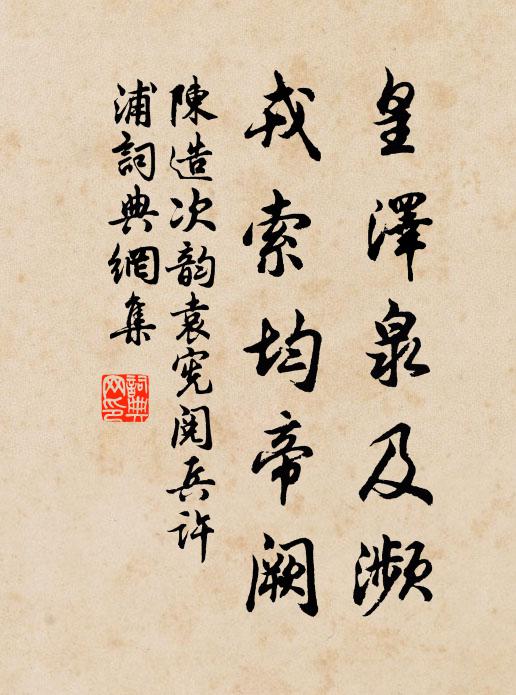 皇澤泉及瀕
戎索均帝闕
陳造次韵袁憲閱兵許
浦詞典網集
詞典網印